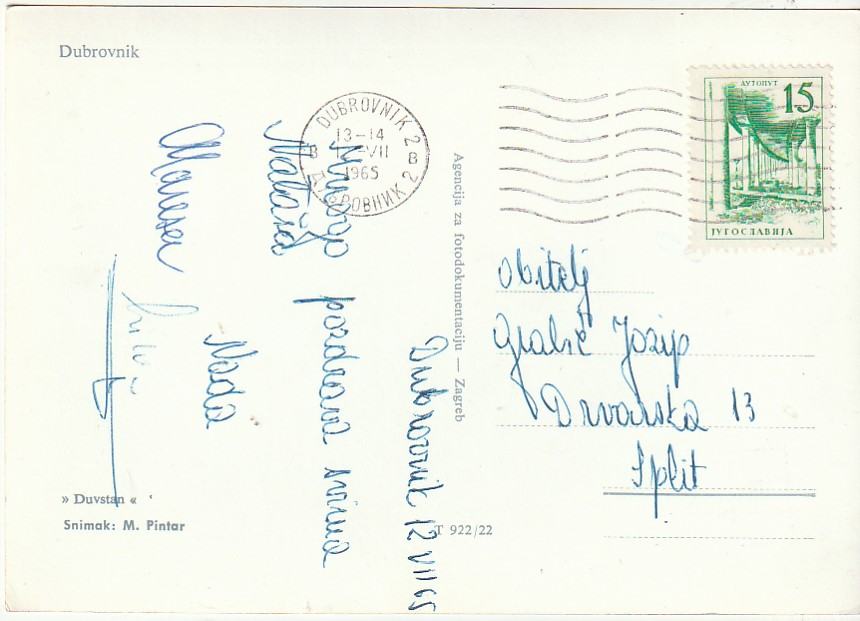 Dubrovnik
Dubrovnik 12 VII 65
Mnogo pozdrava svima
Nataša
Nada
DUBROVNIK 2
13-14
-VII
1965
B B
ДУБРОВНИК 2
Agencija za fotodokumentaciju — Zagreb
АУТОПУТ
15
ЈУГОСЛАВИЈА
Obitelj
Grabić Josip
Drvarska 13
Split
» Duvstan «
Snimak: M. Pintar
T 922/22